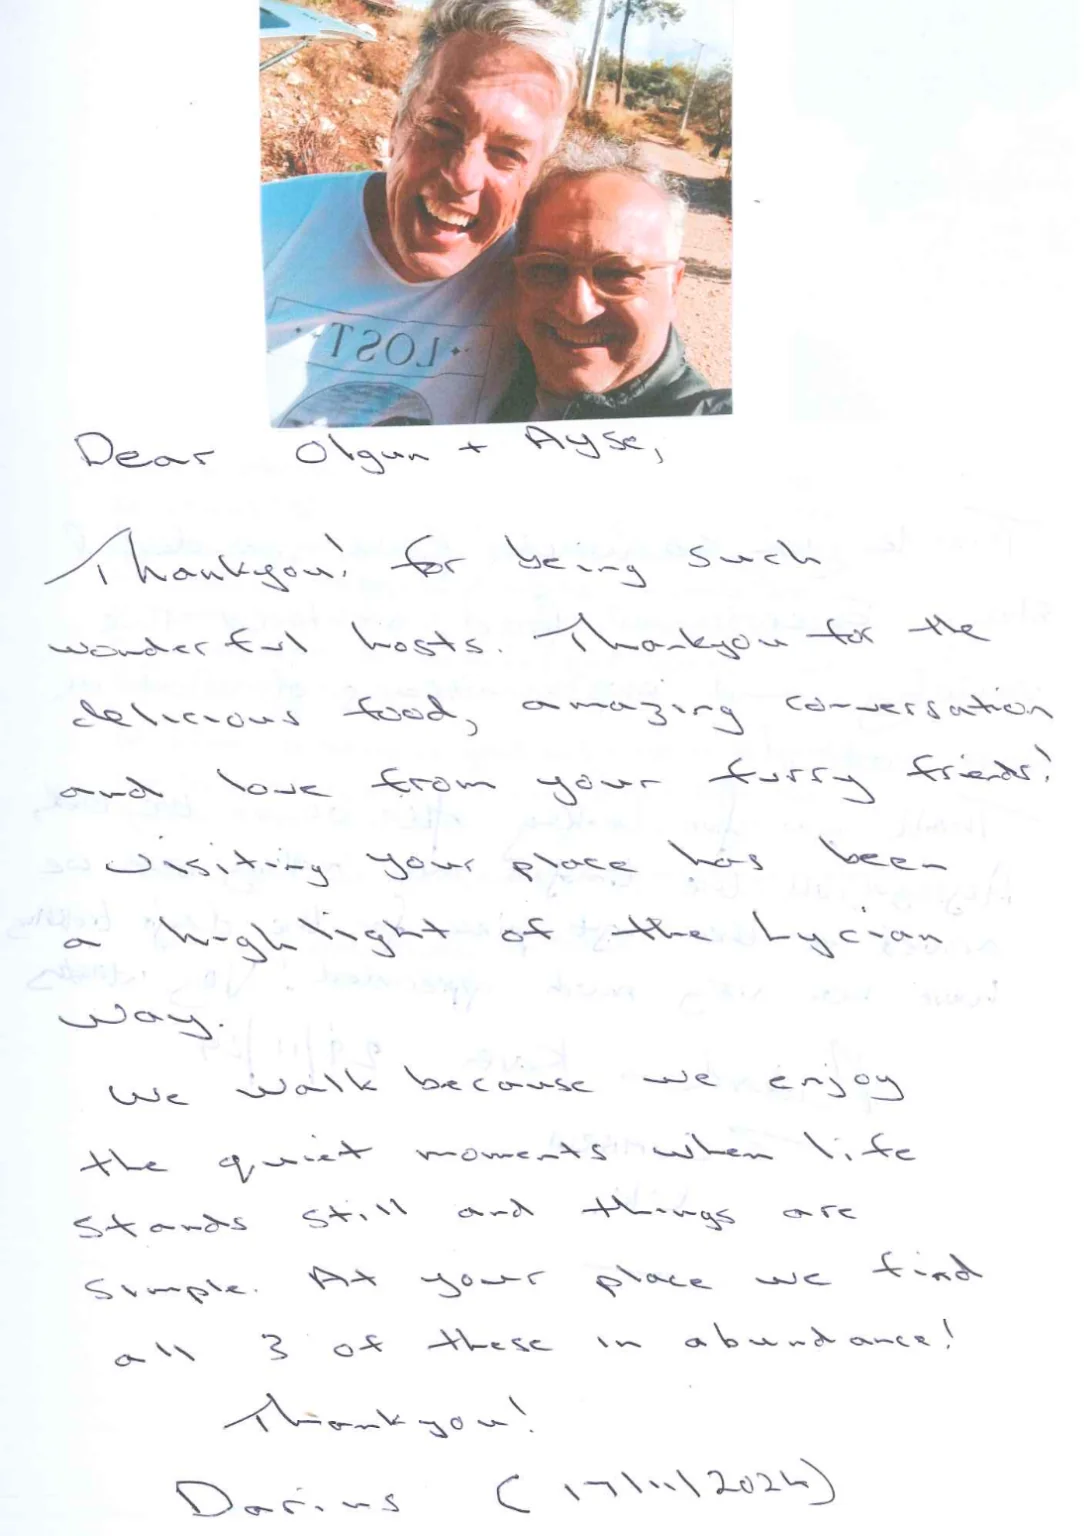 LOST
Dear Olgun + Ayse,
Thankyou! for being such
wonderful hosts. Thankyou for the
delicious food, amazing conversation
and love from your furry friends!
Visiting your place has been
a highlight of the Lycian
Way.
We walk because we enjoy
the quiet moments when life
stands still and things are
simple. At your place we find
all 3 of these in abundance!
Thankyou!
Darius (17/11/2024)